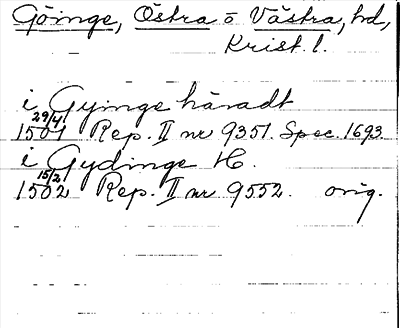 Göinge, Östra o Västra, hd,
Krist. l.
i Gyinge häradt
29/4
1501 Rep. II nr 9351. Spec. 1693.
i Gydinge H.
15/2
1502 Rep. II nr 9552. orig.